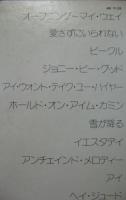 オープニング〜マイ・ウェイ
愛さずにいられない
ビークル
ジョニー・ビー・グッド
アイ・ウォント・テイク・ユー・ハイヤー
ホールド・オン・アイム・カミン
雪が降る
イエスタデイ
アンチェインド・メロディー
アイ
ヘイ・ジュード